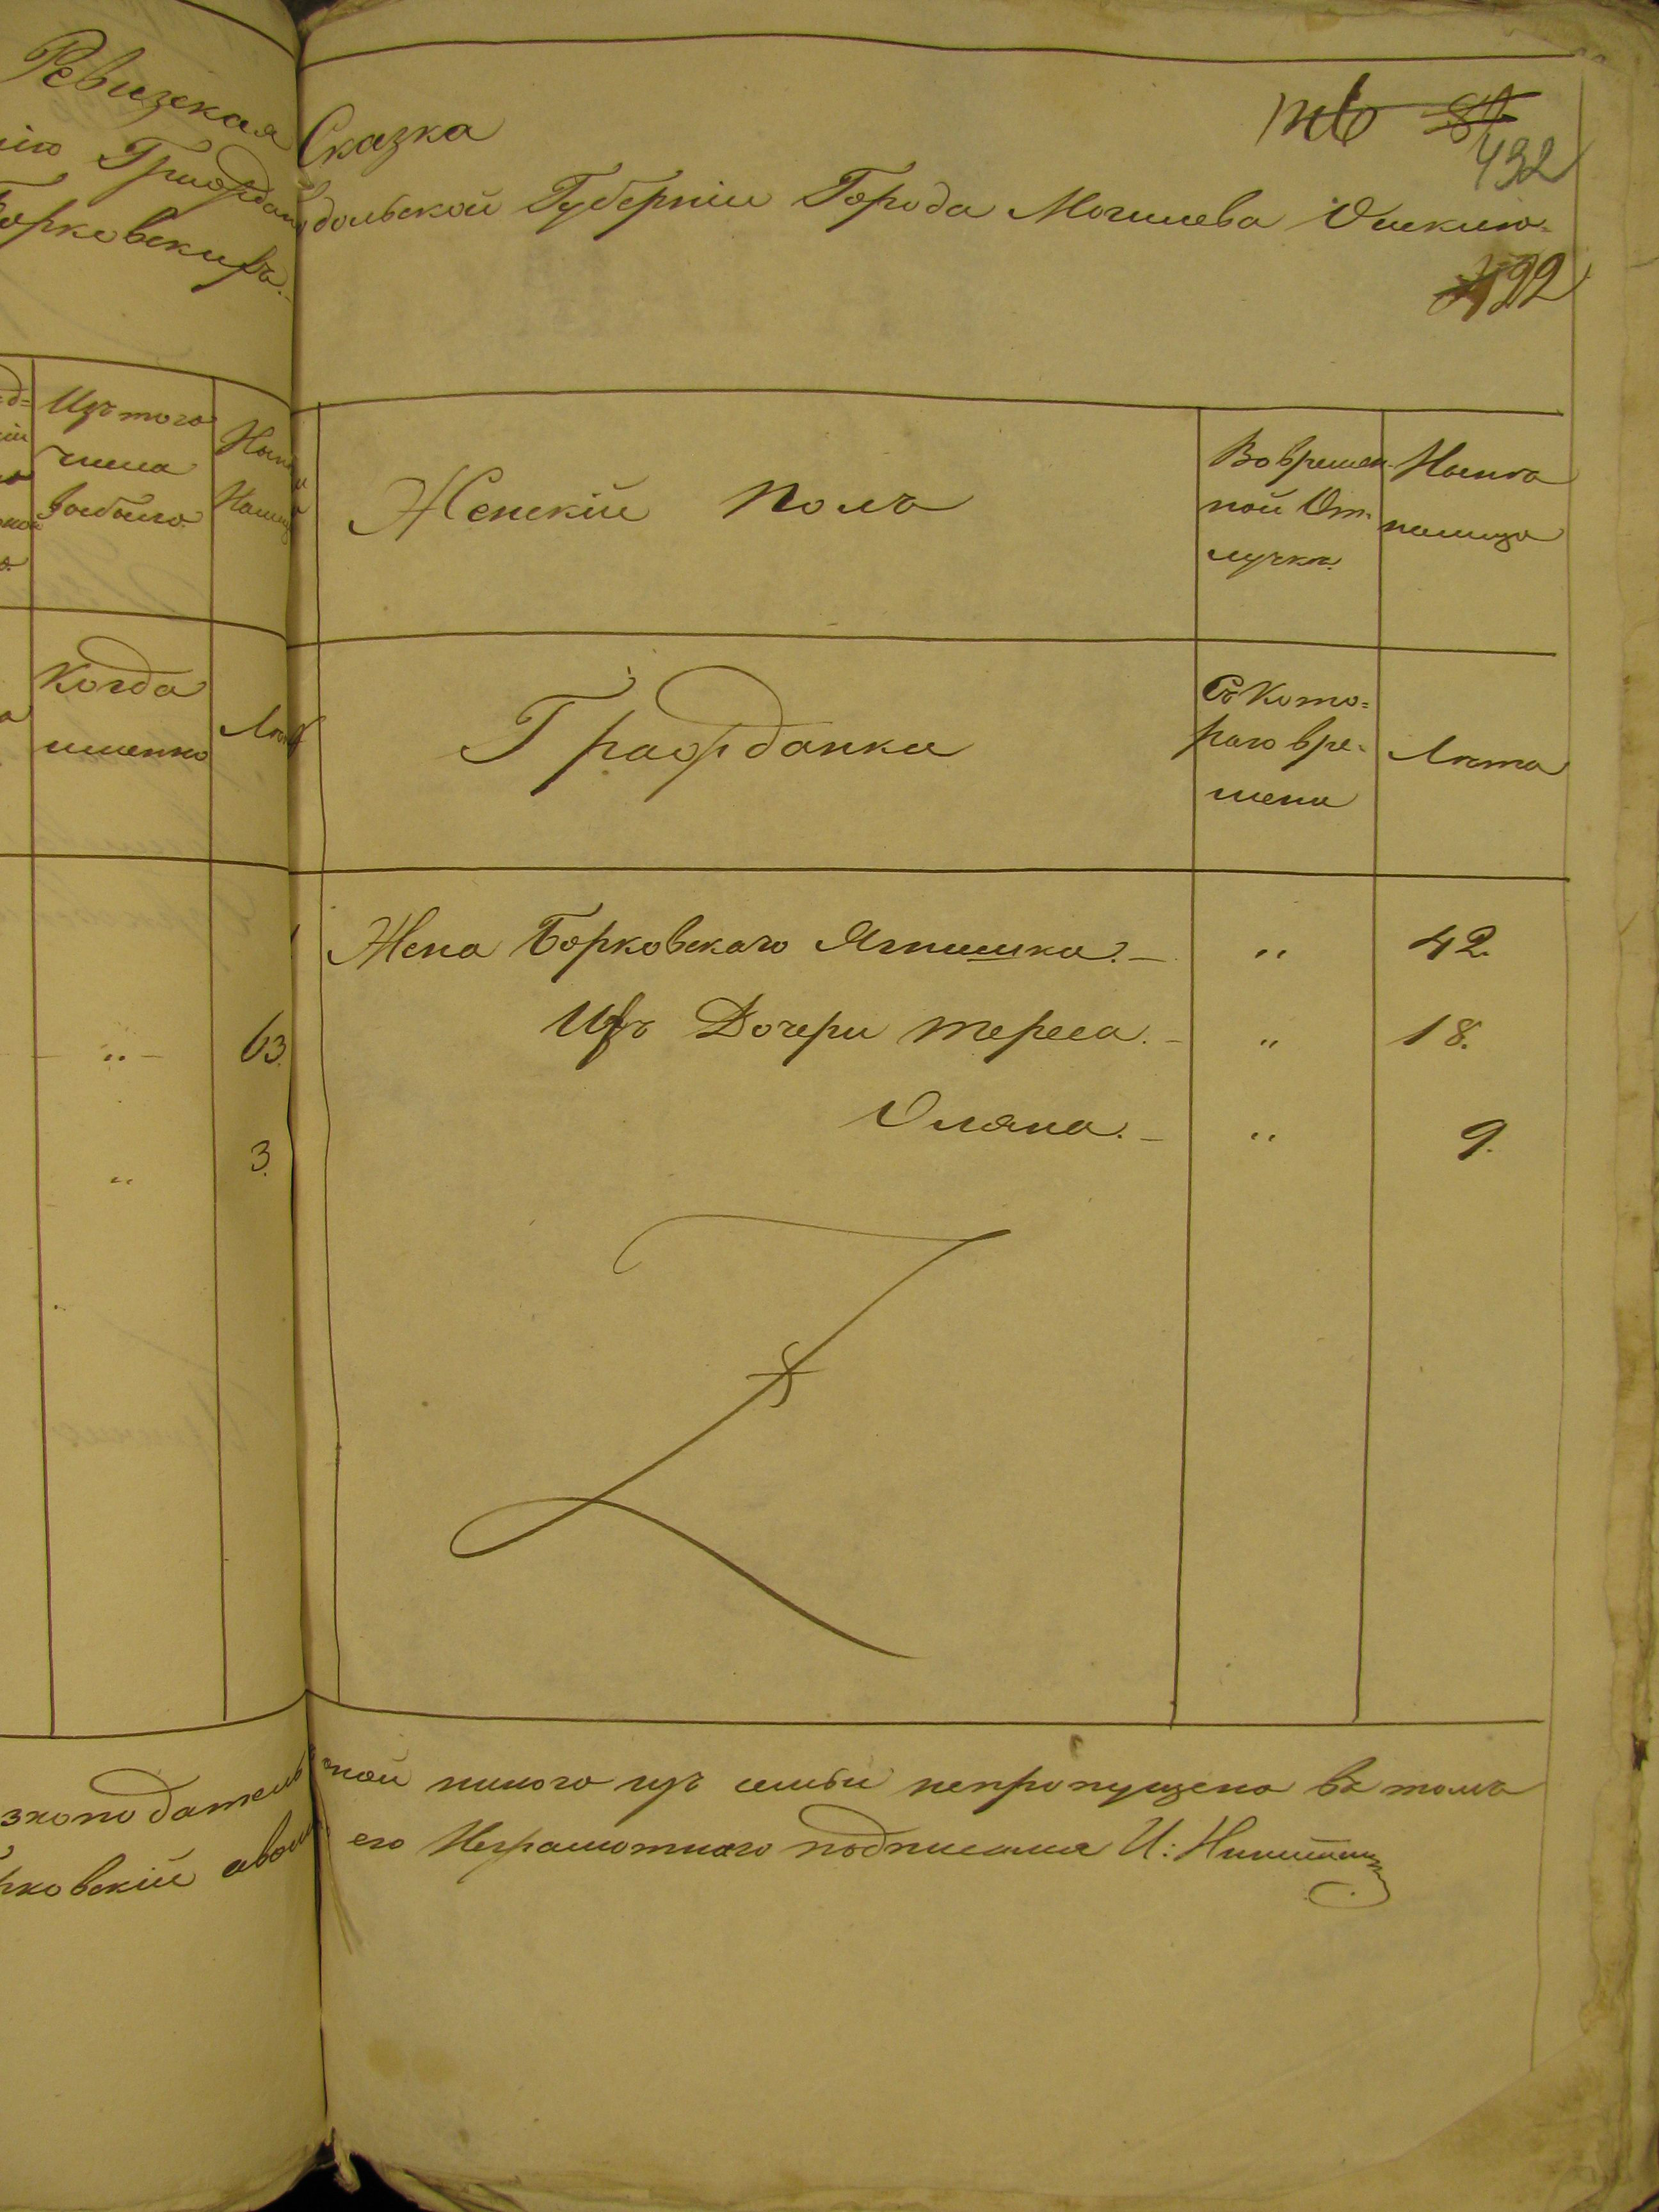 Ревизская Сказка
432
нію Граждан
Подольской Губерніи Города Могилева
Борковскихъ.
Изъ того
числа
выбыло
Нынѣ
Налицо
Женскій Полъ
Во времен-
ной От-
лучкѣ.
Нынѣ
налицо
Когда
именно
Лѣта
Гражданки
Съ Кото=
раго вре-
мени
Лѣта
Жена Борковскаго Ягнишка. – „ 42.
„ 63.
Ихъ Дочери Тереса. – „ 18.
„ 3.
Уляна. – „ 9.
никого изъ семьи непропущено въ томъ
его Неграмотнаго подписался И: